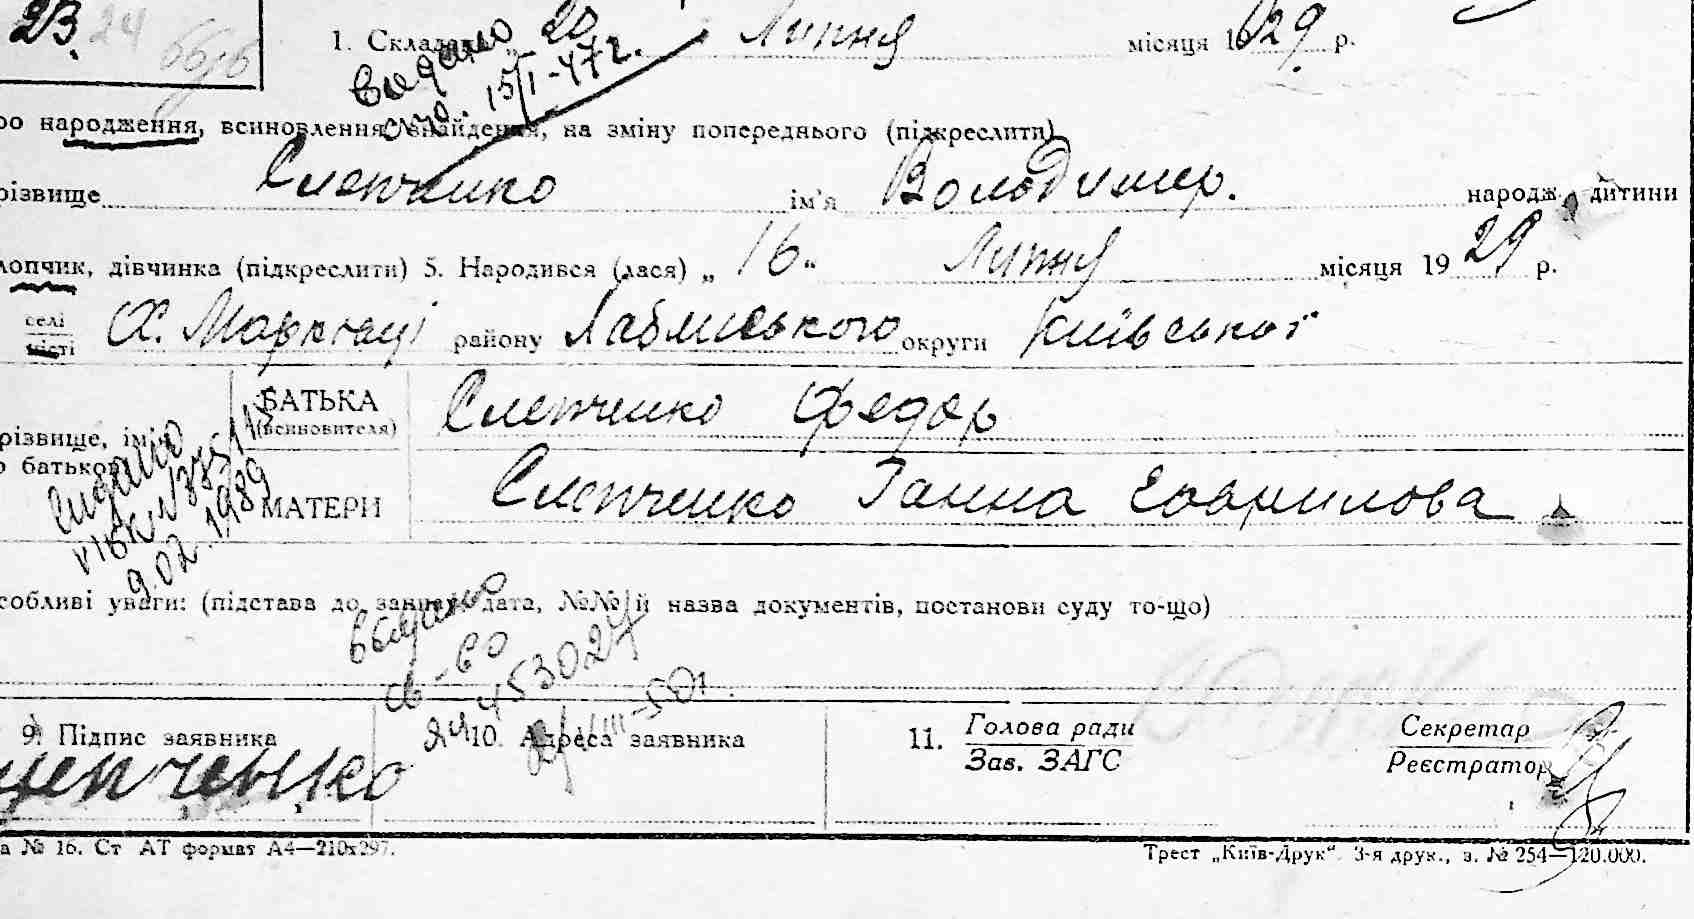 23. 24
1. Складено „ 20 " Липня місяця 1929 р.
видано
15/I-47 г.
ро народження, всиновлення, знайдення, на зміну попереднього (підкреслити)
різвище Слепченко ім'я Володимер. народж. дитини
лопчик, дівчинка (підкреслити) 5. Народився (лася) „ 16 " Липня місяця 1929 р.
селі
місті Х. району округи Київської
різвище, ім'я
о батькові
БАТЬКА
(всиновителя) Слепченко Федор
МАТЕРИ Слепченко Ганна Гаврилова
видано
9.02.1989
собливі уваги: (підстава до запису, дата, №№ й назва документів, постанови суду то-що)
выдано
св-во
ЯЧ 453027
9. Підпис заявника 10. Адреса заявника 11. Голова ради
Зав. ЗАГС Секретар
Реєстратор
а № 16. Ст АТ формат А4—210х297. Трест „Київ-Друк". 3-я друк., з. № 254—120.000.